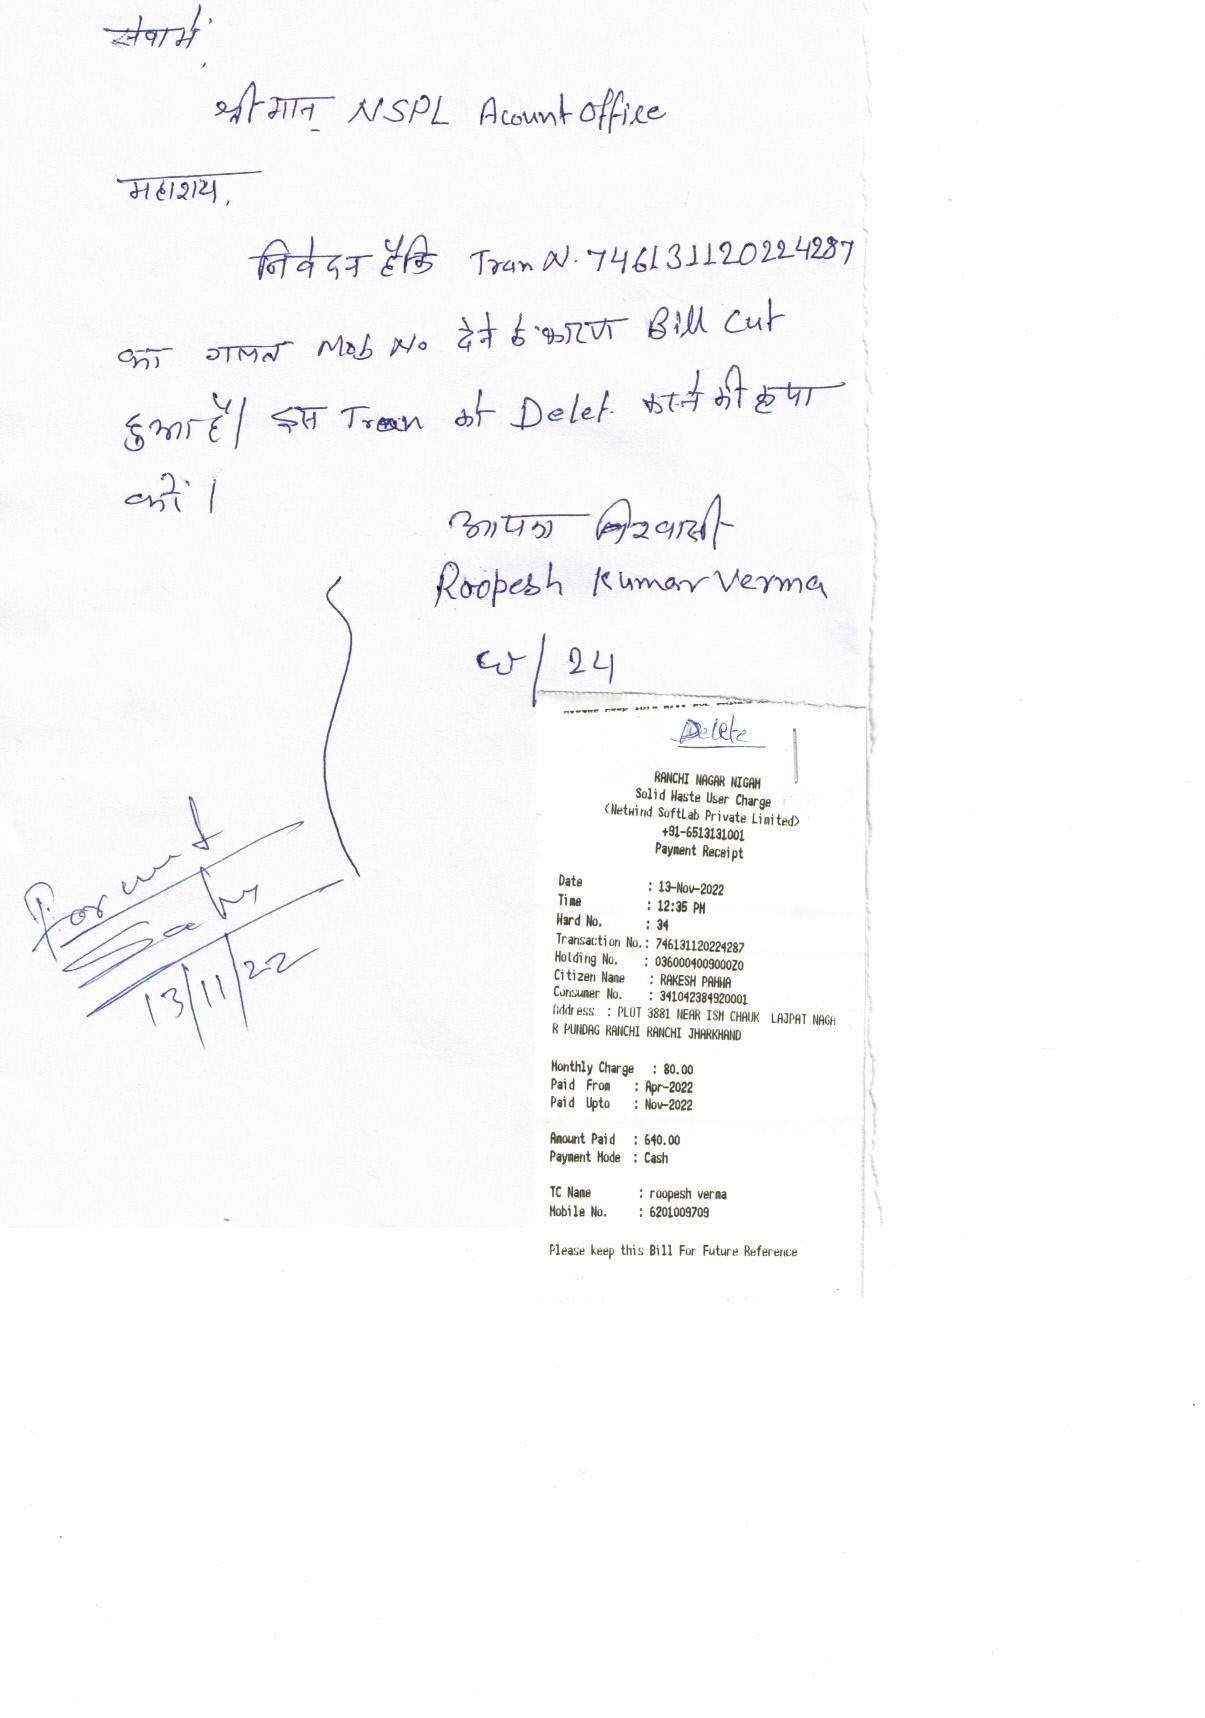 सेवा में,
श्रीमान् NSPL Acount office
महाशय,
निवेदन है कि Tran N. 746131120224287
का गलत Mob No देने के कारण Bill cut
हुआ है। इस Tran को Delet. करने की कृपा
करें।
आपका विश्वासी
Roopesh Kumar Verma
W/24
Forward
13/11/22
Delete
RANCHI NAGAR NIGAM
Solid Waste User Charge
(Netwind SoftLab Private Limited)
+91-6513131001
Payment Receipt
Date : 13-Nov-2022
Time : 12:35 PM
Ward No. : 34
Transaction No.: 746131120224287
Holding No. : 0360004009000Z0
Citizen Name : RAKESH PAHWA
Consumer No. : 341042384920001
Address : PLOT 3881 NEAR ISM CHAUK LAJPAT NAGA
R PUNDAG RANCHI RANCHI JHARKHAND
Monthly Charge : 80.00
Paid From : Apr-2022
Paid Upto : Nov-2022
Amount Paid : 640.00
Payment Mode : Cash
TC Name : roopesh verma
Mobile No. : 6201009709
Please keep this Bill For Future Reference